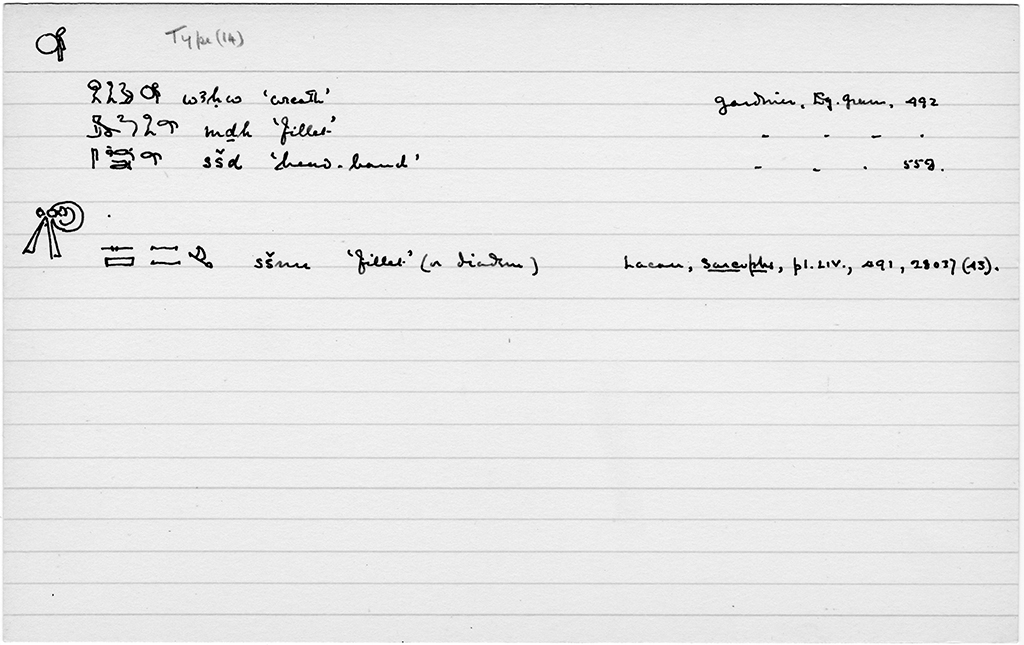 Type (14)
wꜣḥw 'wreath' Gardiner, Eg. gram, 492
mḏḥ 'fillet' - - - .
sšd 'head-band' - - . 559.
sšmm 'fillet' (or diadem) Lacau, Sarcophs, pl. LIV., 491, 28037 (43).